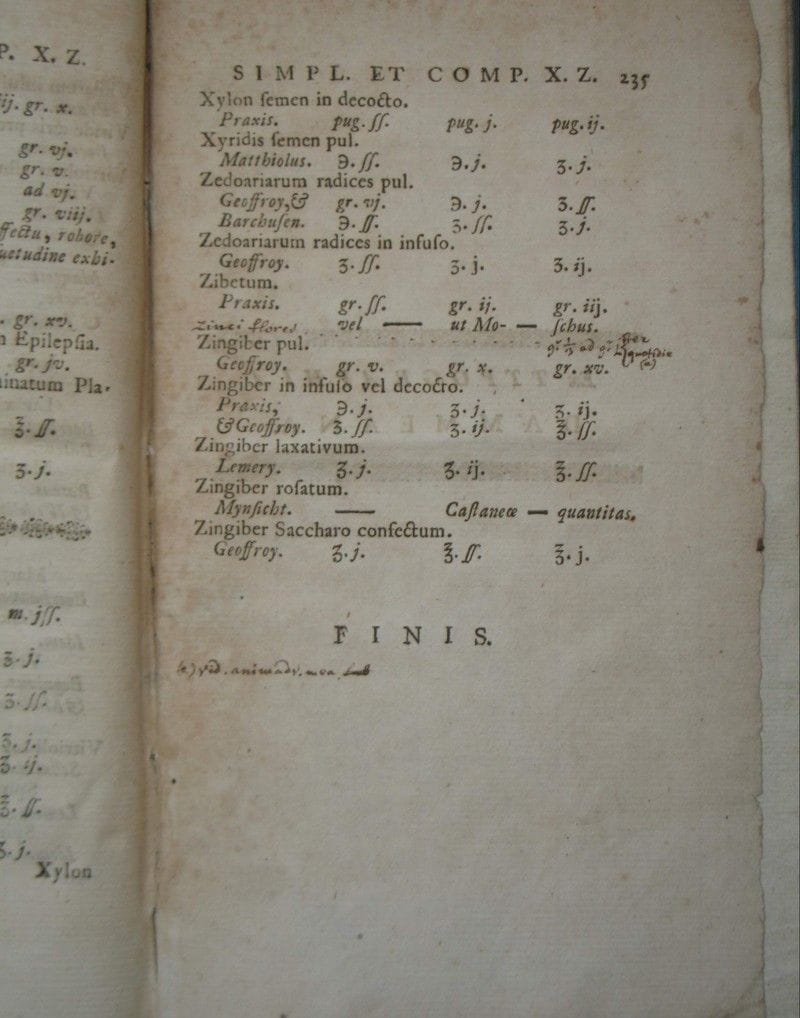 P. X. Z.
ij. gr. x.
gr. vj.
gr. v.
ad vj.
gr. viij.
ffectu, robore,
uetudine exhi-
gr. xv.
Epilepſia.
gr. jv.
inatum Pla-
℥. ſſ.
ʒ. j.
m. jſſ.
ʒ. j.
ʒ. ſſ.
ʒ. j.
ʒ. ij.
℥. ſſ.
ʒ. j.
Xylon
SIMPL. ET COMP. X. Z. 235
Xylon ſemen in decocto.
Praxis. pug. ſſ. pug. j. pug. ij.
Xyridis ſemen pul.
Matthiolus. ℈. ſſ. ℈. j. ʒ. j.
Zedoariarum radices pul.
Geoffroy, & gr. vj. ℈. j. ʒ. ſſ.
Barchuſen. ℈. ſſ. ʒ. ſſ. ʒ. j.
Zedoariarum radices in infuſo.
Geoffroy. ʒ. ſſ. ʒ. j. ʒ. ij.
Zibetum.
Praxis. gr. ſſ. gr. ij. gr. iij.
vel — ut Mo- — ſchus.
Zinci flores
Zingiber pul.
Geoffroy. gr. v. gr. x. gr. xv.
Zingiber in infuſo vel decocto.
Praxis, ℈. j. ʒ. j. ʒ. ij.
& Geoffroy. ʒ. ſſ. ʒ. ij. ℥. ſſ.
Zingiber laxativum.
Lemery. ʒ. j. ʒ. ij. ℥. ſſ.
Zingiber roſatum.
Mynſicht. — Caſtaneæ — quantitas.
Zingiber Saccharo confectum.
Geoffroy. ʒ. j. ℥. ſſ. ℥. j.
FINIS.
(a) vid. animadv.